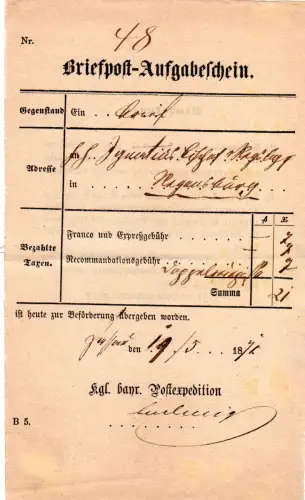 Nr. 48
Briefpoſt-Aufgabeſchein.
Gegenstand Ein Brief
Adresse an H. H. Ignatius Bischof v Regsbg
in Regensburg
fl. kr.
Bezahlte Taxen. Franco und Expreßgebühr 7
Recommandationsgebühr 7
7
Summa 21
ist heute zur Beförderung übergeben worden.
den 19/5 1871
Kgl. bayr. Postexpedition
B 5.